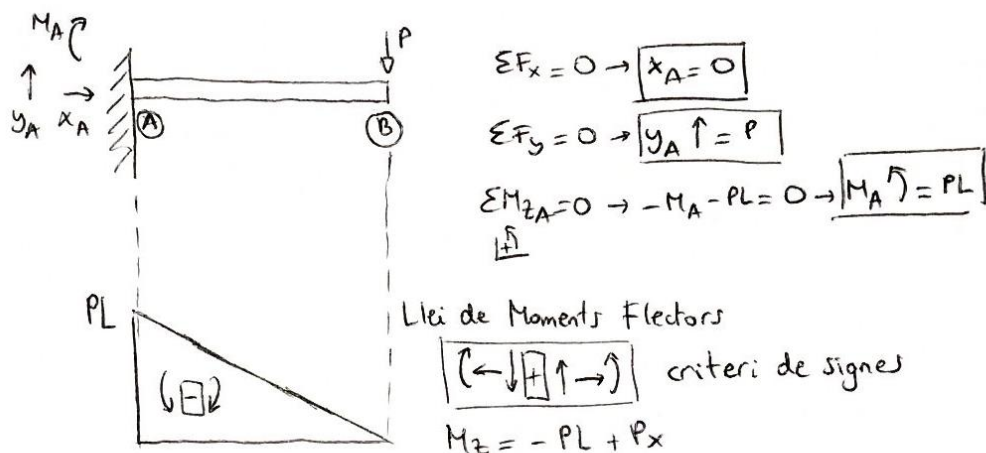 M_A
P
y_A x_A
A B
ΣF_x = 0 → x_A = 0
ΣF_y = 0 → y_A ↑ = P
ΣM_zA = 0 → -M_A - PL = 0 → M_A ↶ = PL
+
PL
Llei de Moments Flectors
(← ↓ + ↑ →) criteri de signes
( - )
M_z = - PL + Px